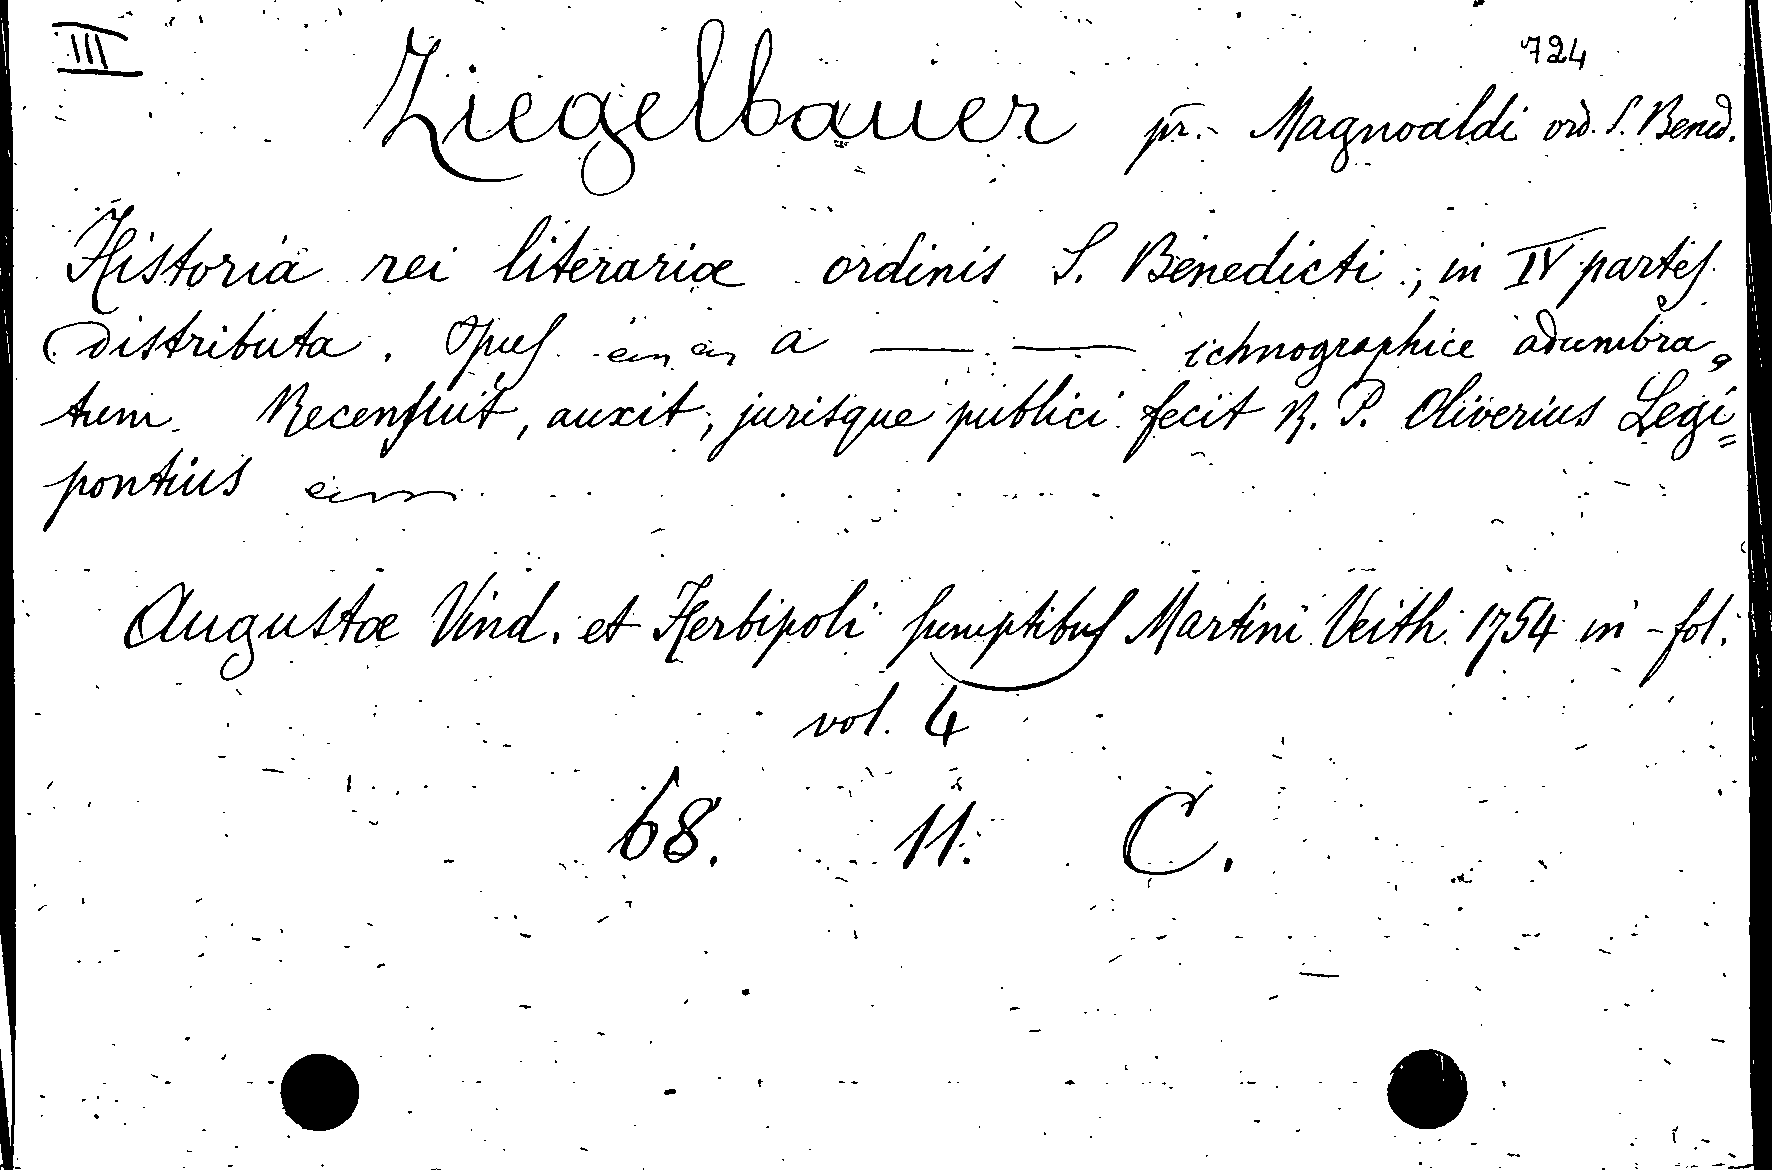 III
724
Ziegelbauer pr. Magnoaldi ord. S. Bened.
Historia rei literariæ ordinis S. Benedicti, in IV partes
distributa. Opus a — — ichnographice adumbra„
tum. Recensuit, auxit, jurisque publici fecit R. P. Oliverius Legi=
pontius
Augustæ Vind. et Herbipoli sumptibus Martini Veith 1754 in-fol.
vol. 4
68. 11. C.